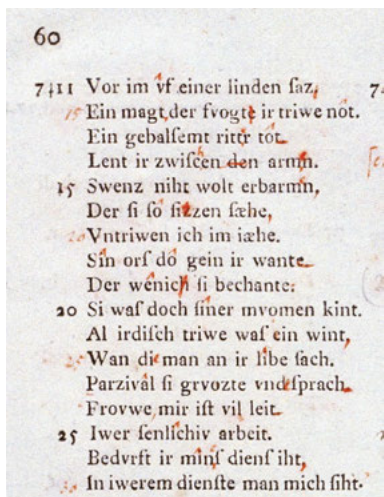 60
7411 Vor im vf einer linden ſaz,
Ein magt, der fvogte ir triwe nôt.
Ein gebalſemt rittr tôt
Lent ir zwiſchen den armn.
15 Swenz niht wolt erbarmn,
Der ſi ſô ſitzen ſæhe,
Vntriwen ich im iæhe.
Sin orſ dô gein ir wante
Der wênich ſi bechante:
20 Si waſ doch ſiner mvomen kint.
Al irdiſch triwe waſ ein wint,
Wan die man an ir libe ſach.
Parzivâl ſi grvozte vnd ſprach
Frovwe, mir iſt vil leit
25 Iwer ſenlichiv arbeit.
Bedvrft ir minſ dienſ iht,
In iwerem dienſte man mich ſiht.